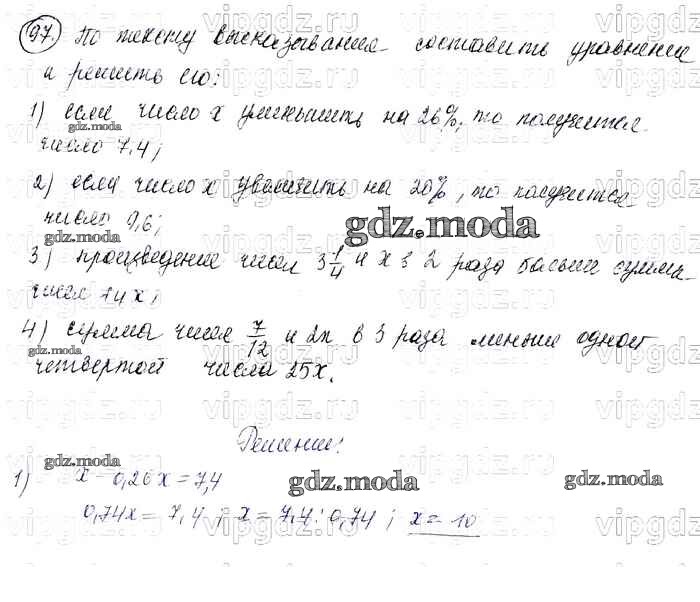 97. По такому высказыванию составить уравнение
и решить его:
1) если число x уменьшить на 26%, то получится
число 7,4;
2) если число x увеличить на 20%, то получится
число 9,6;
3) произведение чисел 3 1/4 и x в 2 раза больше суммы
чисел
4) сумма чисел 7/12 и 2x в 3 раза меньше одной
четвертой числа 25x.
Решение:
1) x - 0,26x = 7,4
0,74x = 7,4; x = 7,4 : 0,74; x = 10
gdz.moda
gdz.moda
gdz.moda
gdz.moda
gdz.moda
gdz.moda
gdz.moda